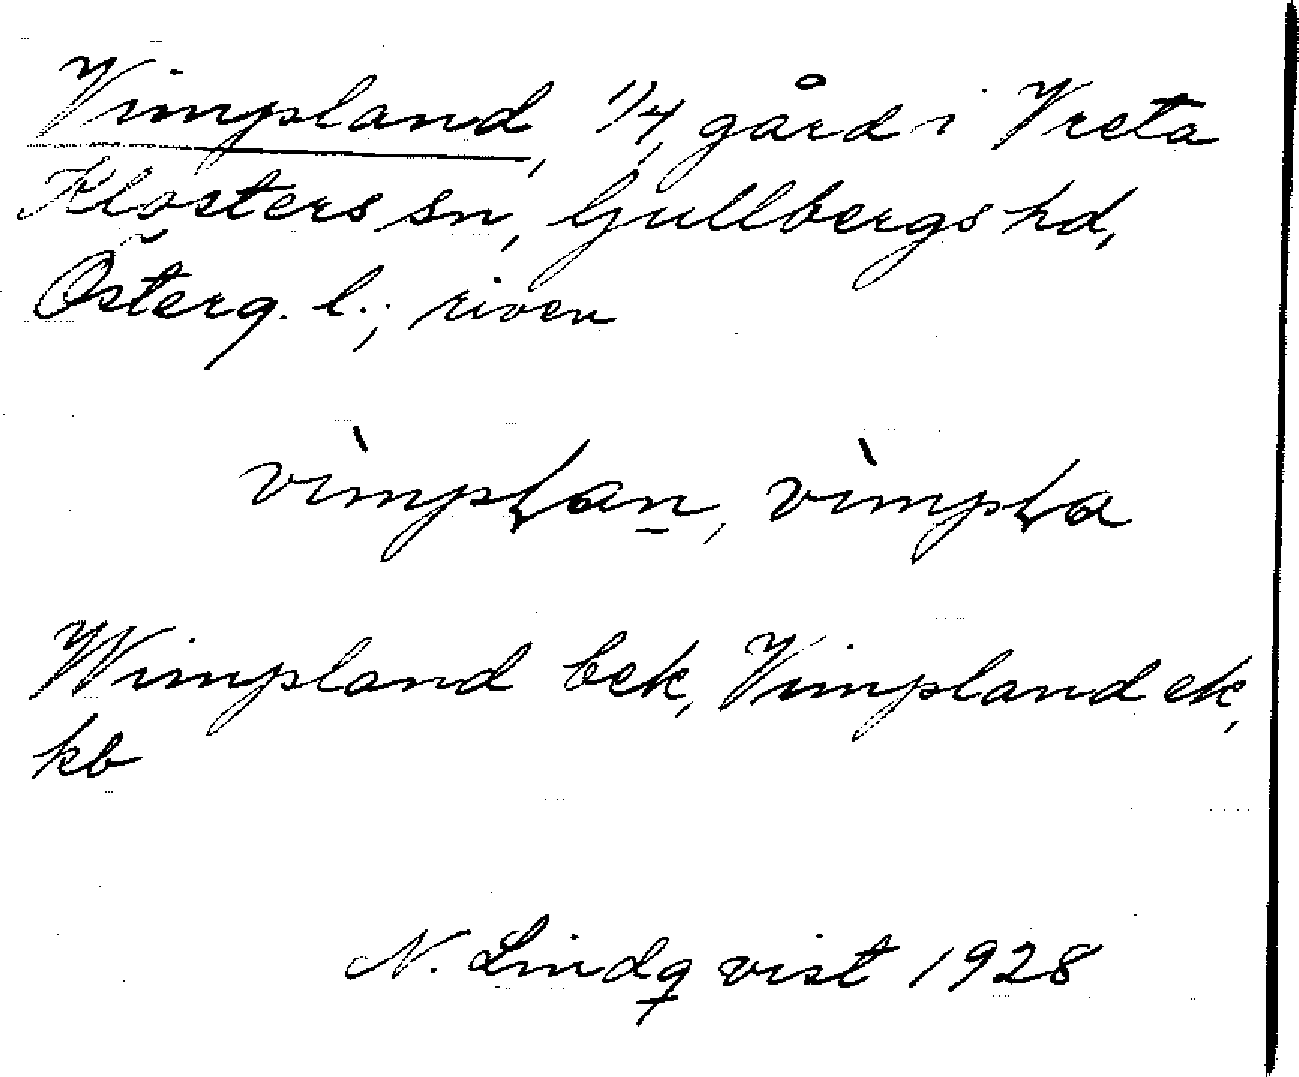 Vimpland, 1/4 gård i Vreta
Klosters sn, Gullbergs hd,
Österg. l.; riven
vìmpɫan, vìmpɫa
Wimpland bek, Vimpland ek,
kb
N. Lindqvist 1928